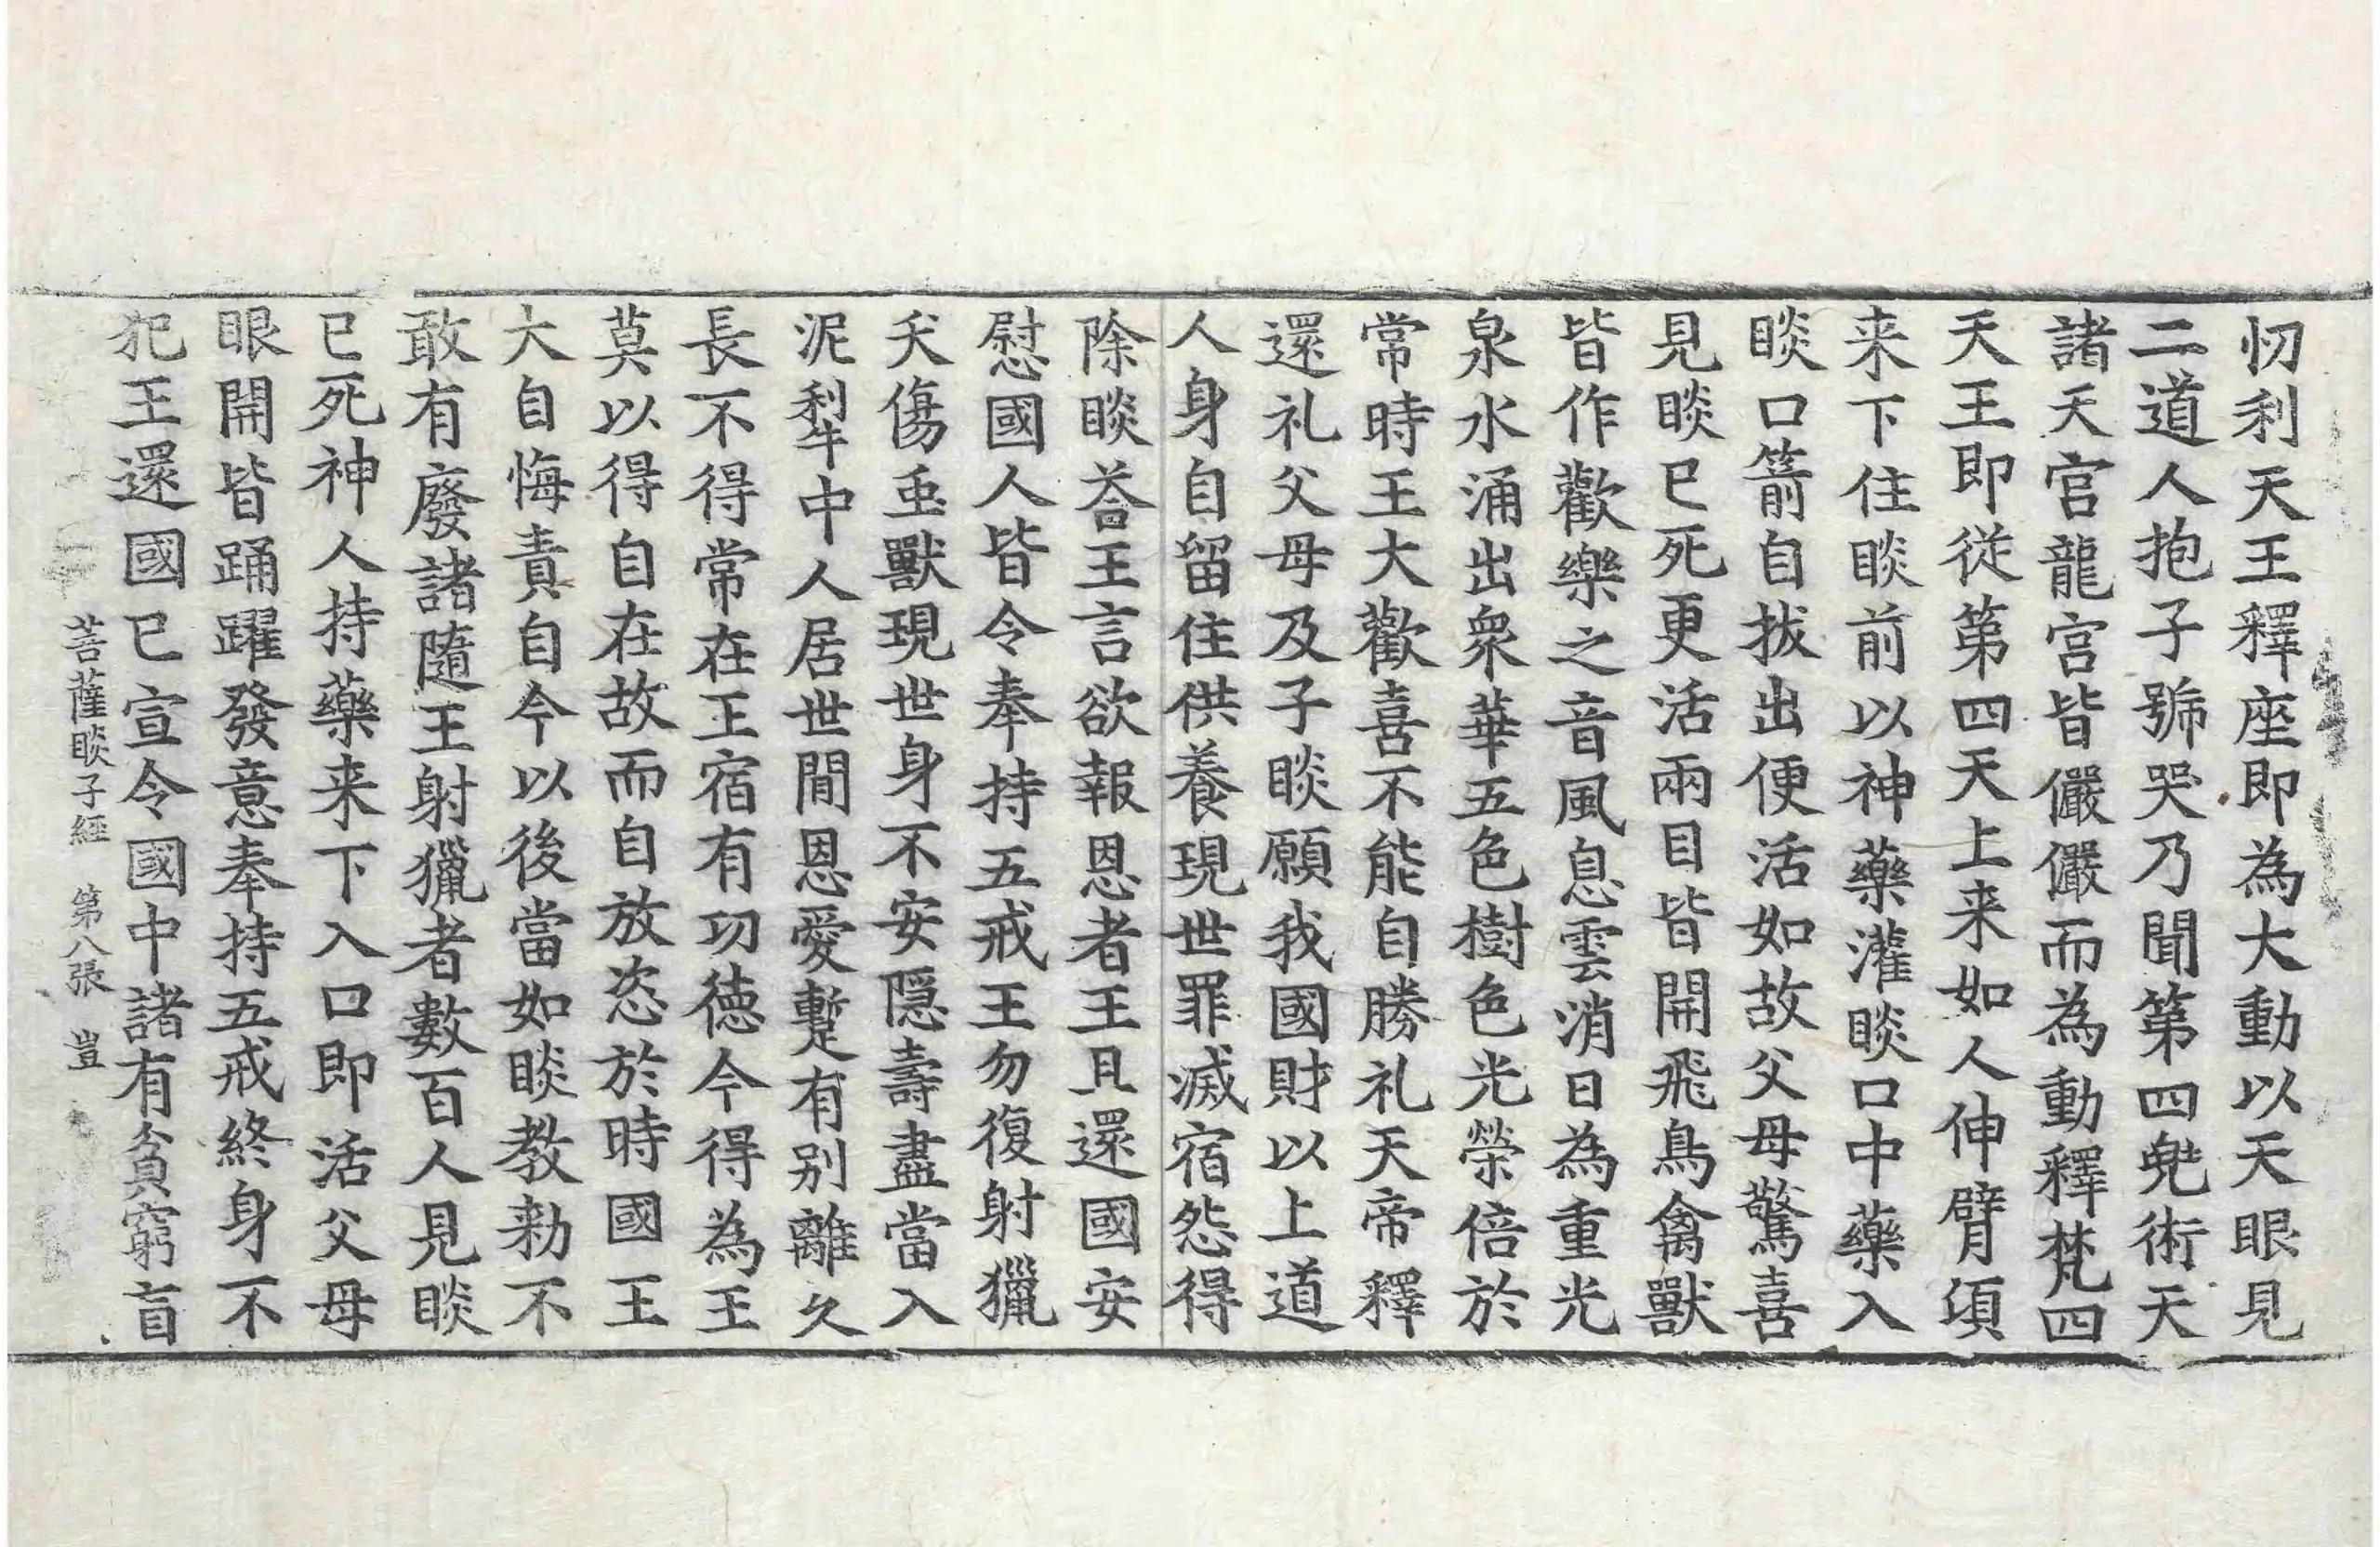 忉利天王釋座即為大動以天眼見
二道人抱子號哭乃聞第四兠術天
諸天宮龍宮皆儼儼而為動釋梵四
天王即從第四天上来如人伸臂湏
来下住睒前以神藥灌睒口中藥入
睒口箭自拔出便活如故父母驚喜
見睒已死更活兩目皆開飛鳥禽獸
皆作歡樂之音風息雲消日為重光
泉水涌出衆華五色樹色光榮倍於
常時王大歡喜不能自勝礼天帝釋
還礼父母及子睒願我國財以上道
人身自留住供養現世罪滅宿怨得
除睒荅王言欲報恩者王且還國安
慰國人皆令奉持五戒王勿復射獵
夭傷䖝獸現世身不安隱壽盡當入
泥犁中人居世間恩愛蹔有別離久
長不得常在王宿有功德今得為王
莫以得自在故而自放恣於時國王
大自悔責自今以後當如睒教勑不
敢有廢諸隨王射獵者數百人見睒
已死神人持藥来下入口即活父母
眼開皆踊躍發意奉持五戒終身不
犯王還國已宣令國中諸有貧窮盲
菩薩睒子經 第八張 豈